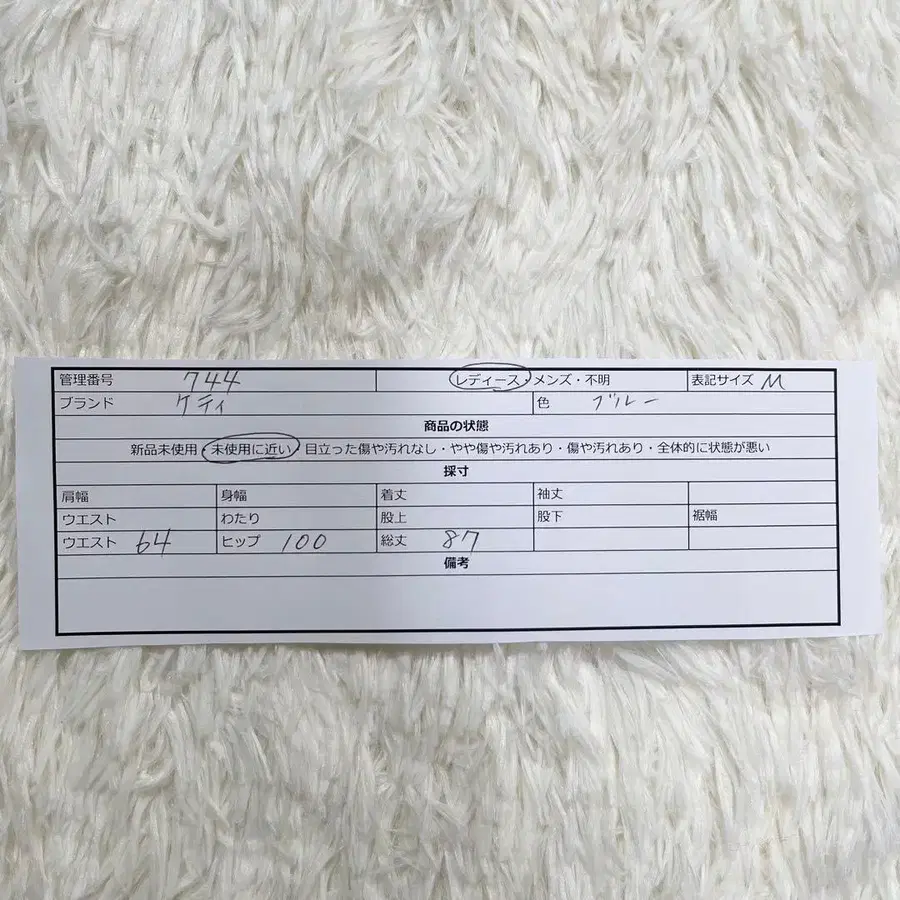 管理番号 744 レディース・メンズ・不明 表記サイズ M
ブランド ケティ 色 ブルー
商品の状態
新品未使用・未使用に近い・目立った傷や汚れなし・やや傷や汚れあり・傷や汚れあり・全体的に状態が悪い
採寸
肩幅 身幅 着丈 袖丈
ウエスト わたり 股上 股下 裾幅
ウエスト 64 ヒップ 100 総丈 87
備考